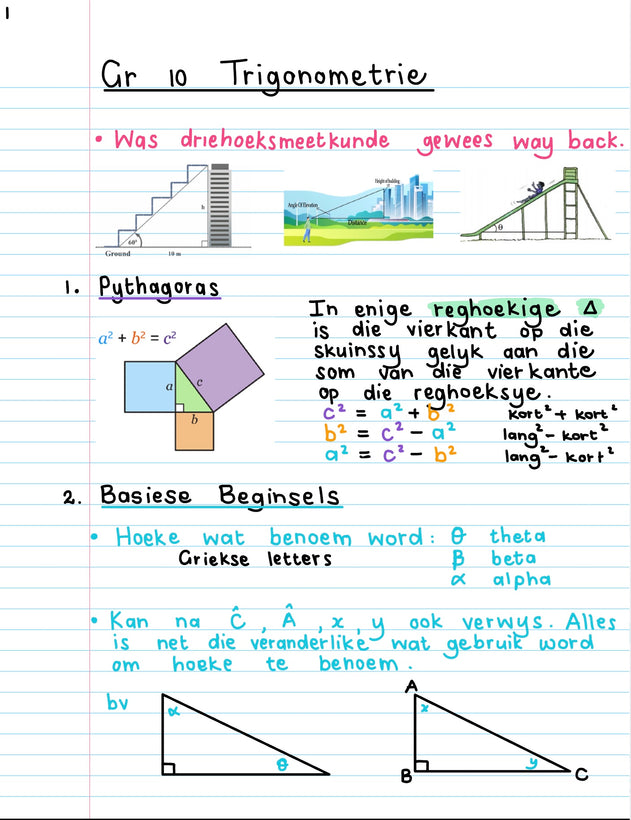 1
Gr 10 Trigonometrie
• Was driehoeksmeetkunde gewees way back.
h
60°
Ground
10 m
Height of building
Angle Of Elevation
Distance
θ
1. Pythagoras
a² + b² = c²
a
c
b
In enige reghoekige Δ
is die vierkant op die
skuinssy gelyk aan die
som van die vierkante
op die reghoeksye.
c² = a² + b² kort² + kort²
b² = c² - a² lang² - kort²
a² = c² - b² lang² - kort²
2. Basiese Beginsels
• Hoeke wat benoem word: θ theta
Griekse letters β beta
α alpha
• Kan na Ĉ, Â, x, y ook verwys. Alles
is net die veranderlike wat gebruik word
om hoeke te benoem.
bv
α
θ
A
x
B
y
C